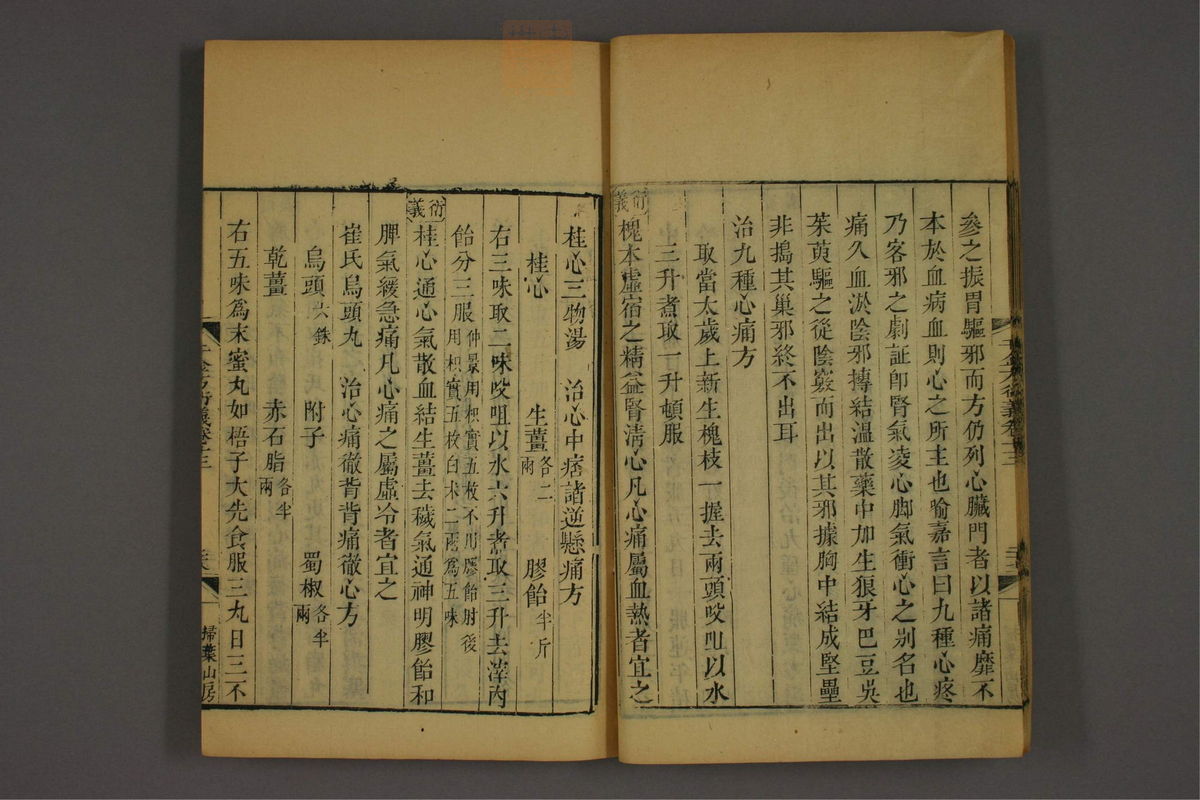 參之振胃驅邪而方仍列心臟門者以諸痛靡不
本於血病血則心之所主也喻嘉言曰九種心疼
乃客邪之劇証卽腎氣凌心脚氣衝心之别名也
痛久血淤陰邪摶結溫散藥中加生狼牙巴豆吳
茱萸驅之從陰竅而出以其邪據胸中結成堅壘
非搗其巢邪終不出耳
治九種心痛方
取當太歲上新生槐枝一握去兩頭㕮咀以水
三升煮取一升頓服
衍義
槐本虛宿之精益腎淸心凡心痛屬血熱者宜之
桂心三物湯 治心中痞諸逆懸痛方
桂心 生薑各二兩 膠飴半斤
右三味取二味㕮咀以水六升煮取三升去滓內
飴分三服仲景用枳實五枚不用膠飴肘後用枳實五枚白朮二兩爲五味
衍義
桂心通心氣散血結生薑去穢氣通神明膠飴和
脾氣緩急痛凡心痛之屬虛冷者宜之
崔氏烏頭丸 治心痛徹背背痛徹心方
烏頭六銖 附子 蜀椒各半兩
乾薑 赤石脂各半兩
右五味爲末蜜丸如梧子大先食服三丸日三不
千金方衍義卷十三
掃葉山房